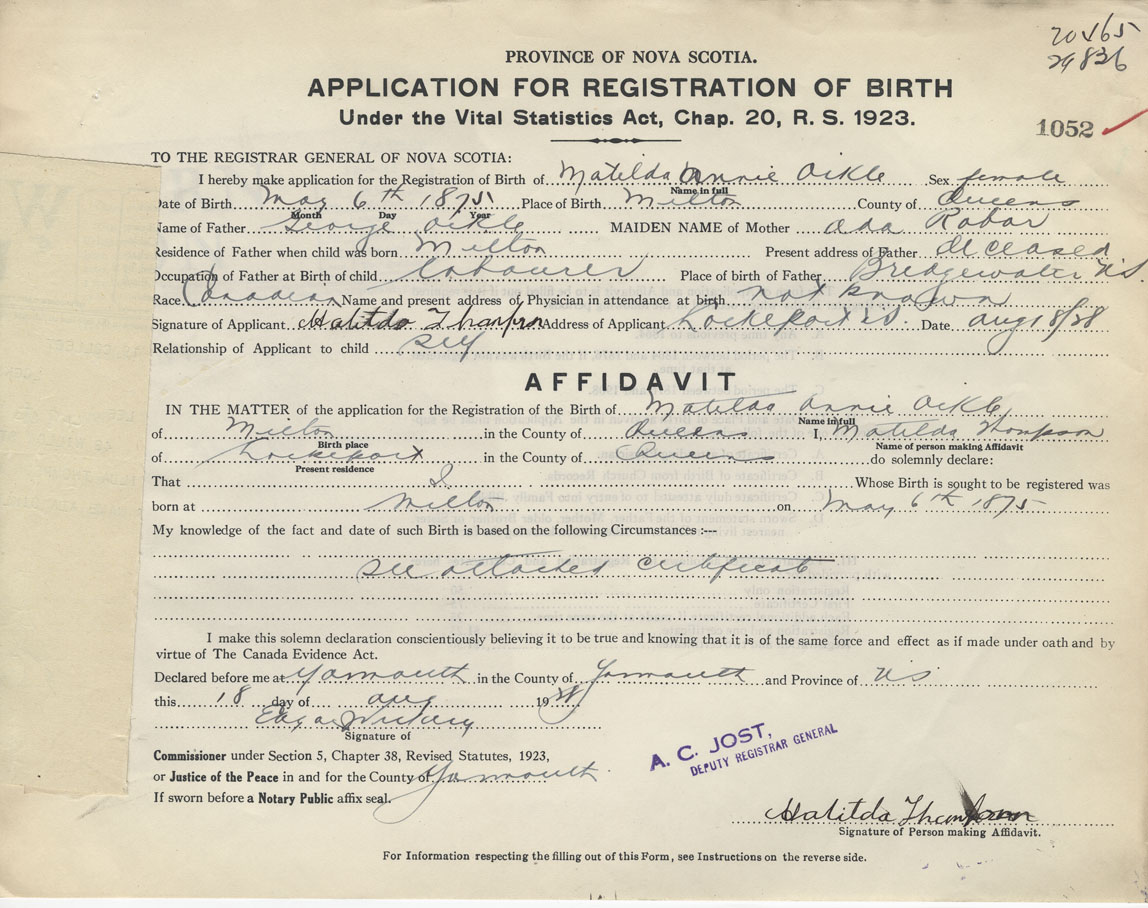 20465
29836
PROVINCE OF NOVA SCOTIA.
APPLICATION FOR REGISTRATION OF BIRTH
Under the Vital Statistics Act, Chap. 20, R. S. 1923.
1052
TO THE REGISTRAR GENERAL OF NOVA SCOTIA:
I hereby make application for the Registration of Birth of Matilda Annie Oikle Sex female
Name in full
Date of Birth May 6th 1875 Place of Birth Milton County of Queens
Month Day Year
Name of Father George Oikle MAIDEN NAME of Mother Ada Robar
Residence of Father when child was born Milton Present address of Father deceased
Occupation of Father at Birth of child labourer Place of birth of Father Bridgewater NS
Race Canadian Name and present address of Physician in attendance at birth not known
Signature of Applicant Matilda Thompson Address of Applicant Lockeport NS. Date Aug 18/38
Relationship of Applicant to child self
AFFIDAVIT
IN THE MATTER of the application for the Registration of the Birth of Matilda Annie Oikle
Name in full
of Milton in the County of Queens I, Matilda Thompson
Birth place Name of person making Affidavit
of Lockeport in the County of Queens do solemnly declare:
Present residence
That I Whose Birth is sought to be registered was
born at Milton on May 6th 1875
My knowledge of the fact and date of such Birth is based on the following Circumstances :—
see attached certificate
I make this solemn declaration conscientiously believing it to be true and knowing that it is of the same force and effect as if made under oath and by
virtue of The Canada Evidence Act.
Declared before me at Yarmouth in the County of Yarmouth and Province of NS
this 18 day of Aug 1938
Edgar
Signature of
Commissioner under Section 5, Chapter 38, Revised Statutes, 1923,
or Justice of the Peace in and for the County of Yarmouth
If sworn before a Notary Public affix seal.
A. C. JOST,
DEPUTY REGISTRAR GENERAL
Matilda Thompson
Signature of Person making Affidavit.
For Information respecting the filling out of this Form, see Instructions on the reverse side.